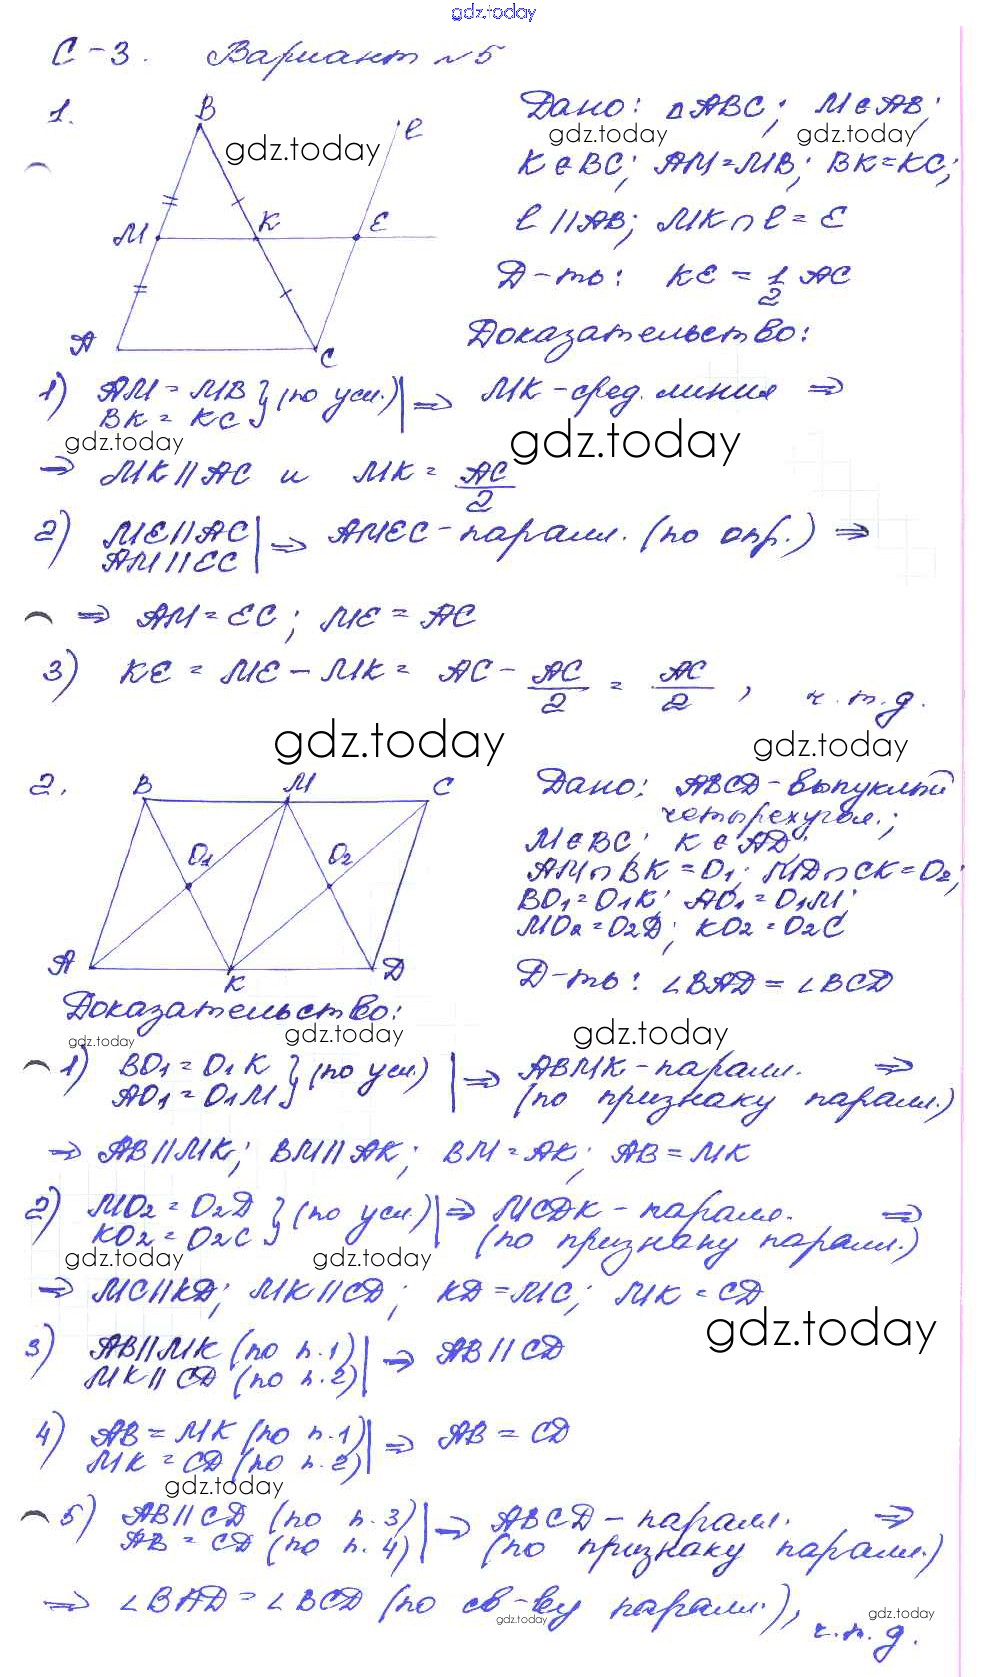 gdz.today
С-3. Вариант №5
1.
B
e
M
K
E
A
C
Дано: △ABC; M∈AB;
gdz.today
gdz.today
gdz.today
K∈BC; AM=MB; BK=KC;
e∥AB; MK∩e=E
Д-ть: KE = 1/2 AC
Доказательство:
1) AM = MB
BK = KC } (по усл.) | ⇒ MK-сред. линия ⇒
gdz.today
gdz.today
⇒ MK∥AC и MK = AC/2
2) ME∥AC
AM∥EC | ⇒ AMEC-паралл. (по опр.) ⇒
⇒ AM=EC; ME=AC
3) KE = ME – MK = AC – AC/2 = AC/2, ч.т.д.
gdz.today
gdz.today
2.
B
M
C
O1
O2
A
K
D
Дано: ABCD-выпуклый
четырехугол.;
M∈BC; K∈AD;
AM∩BK=O1; MD∩CK=O2;
BO1=O1K; AO1=O1M;
MO2=O2D; KO2=O2C
Д-ть: ∠BAD=∠BCD
Доказательство:
gdz.today
gdz.today
gdz.today
1) BO1=O1K
AO1=O1M } (по усл) | ⇒ ABMK-паралл. ⇒
(по признаку паралл.)
⇒ AB∥MK; BM∥AK; BM=AK; AB=MK
2) MO2=O2D
KO2=O2C } (по усл.) | ⇒ MCDK-паралл. ⇒
(по признаку паралл.)
gdz.today
gdz.today
⇒ MC∥KD; MK∥CD; KD=MC; MK=CD
gdz.today
3) AB∥MK (по п.1)
MK∥CD (по п.2) | ⇒ AB∥CD
4) AB=MK (по п.1)
MK=CD (по п.2) | ⇒ AB=CD
gdz.today
5) AB∥CD (по п.3)
AB=CD (по п.4) | ⇒ ABCD-паралл. ⇒
(по признаку паралл.)
⇒ ∠BAD=∠BCD (по св-ву паралл.), ч.т.д.
gdz.today
gdz.today